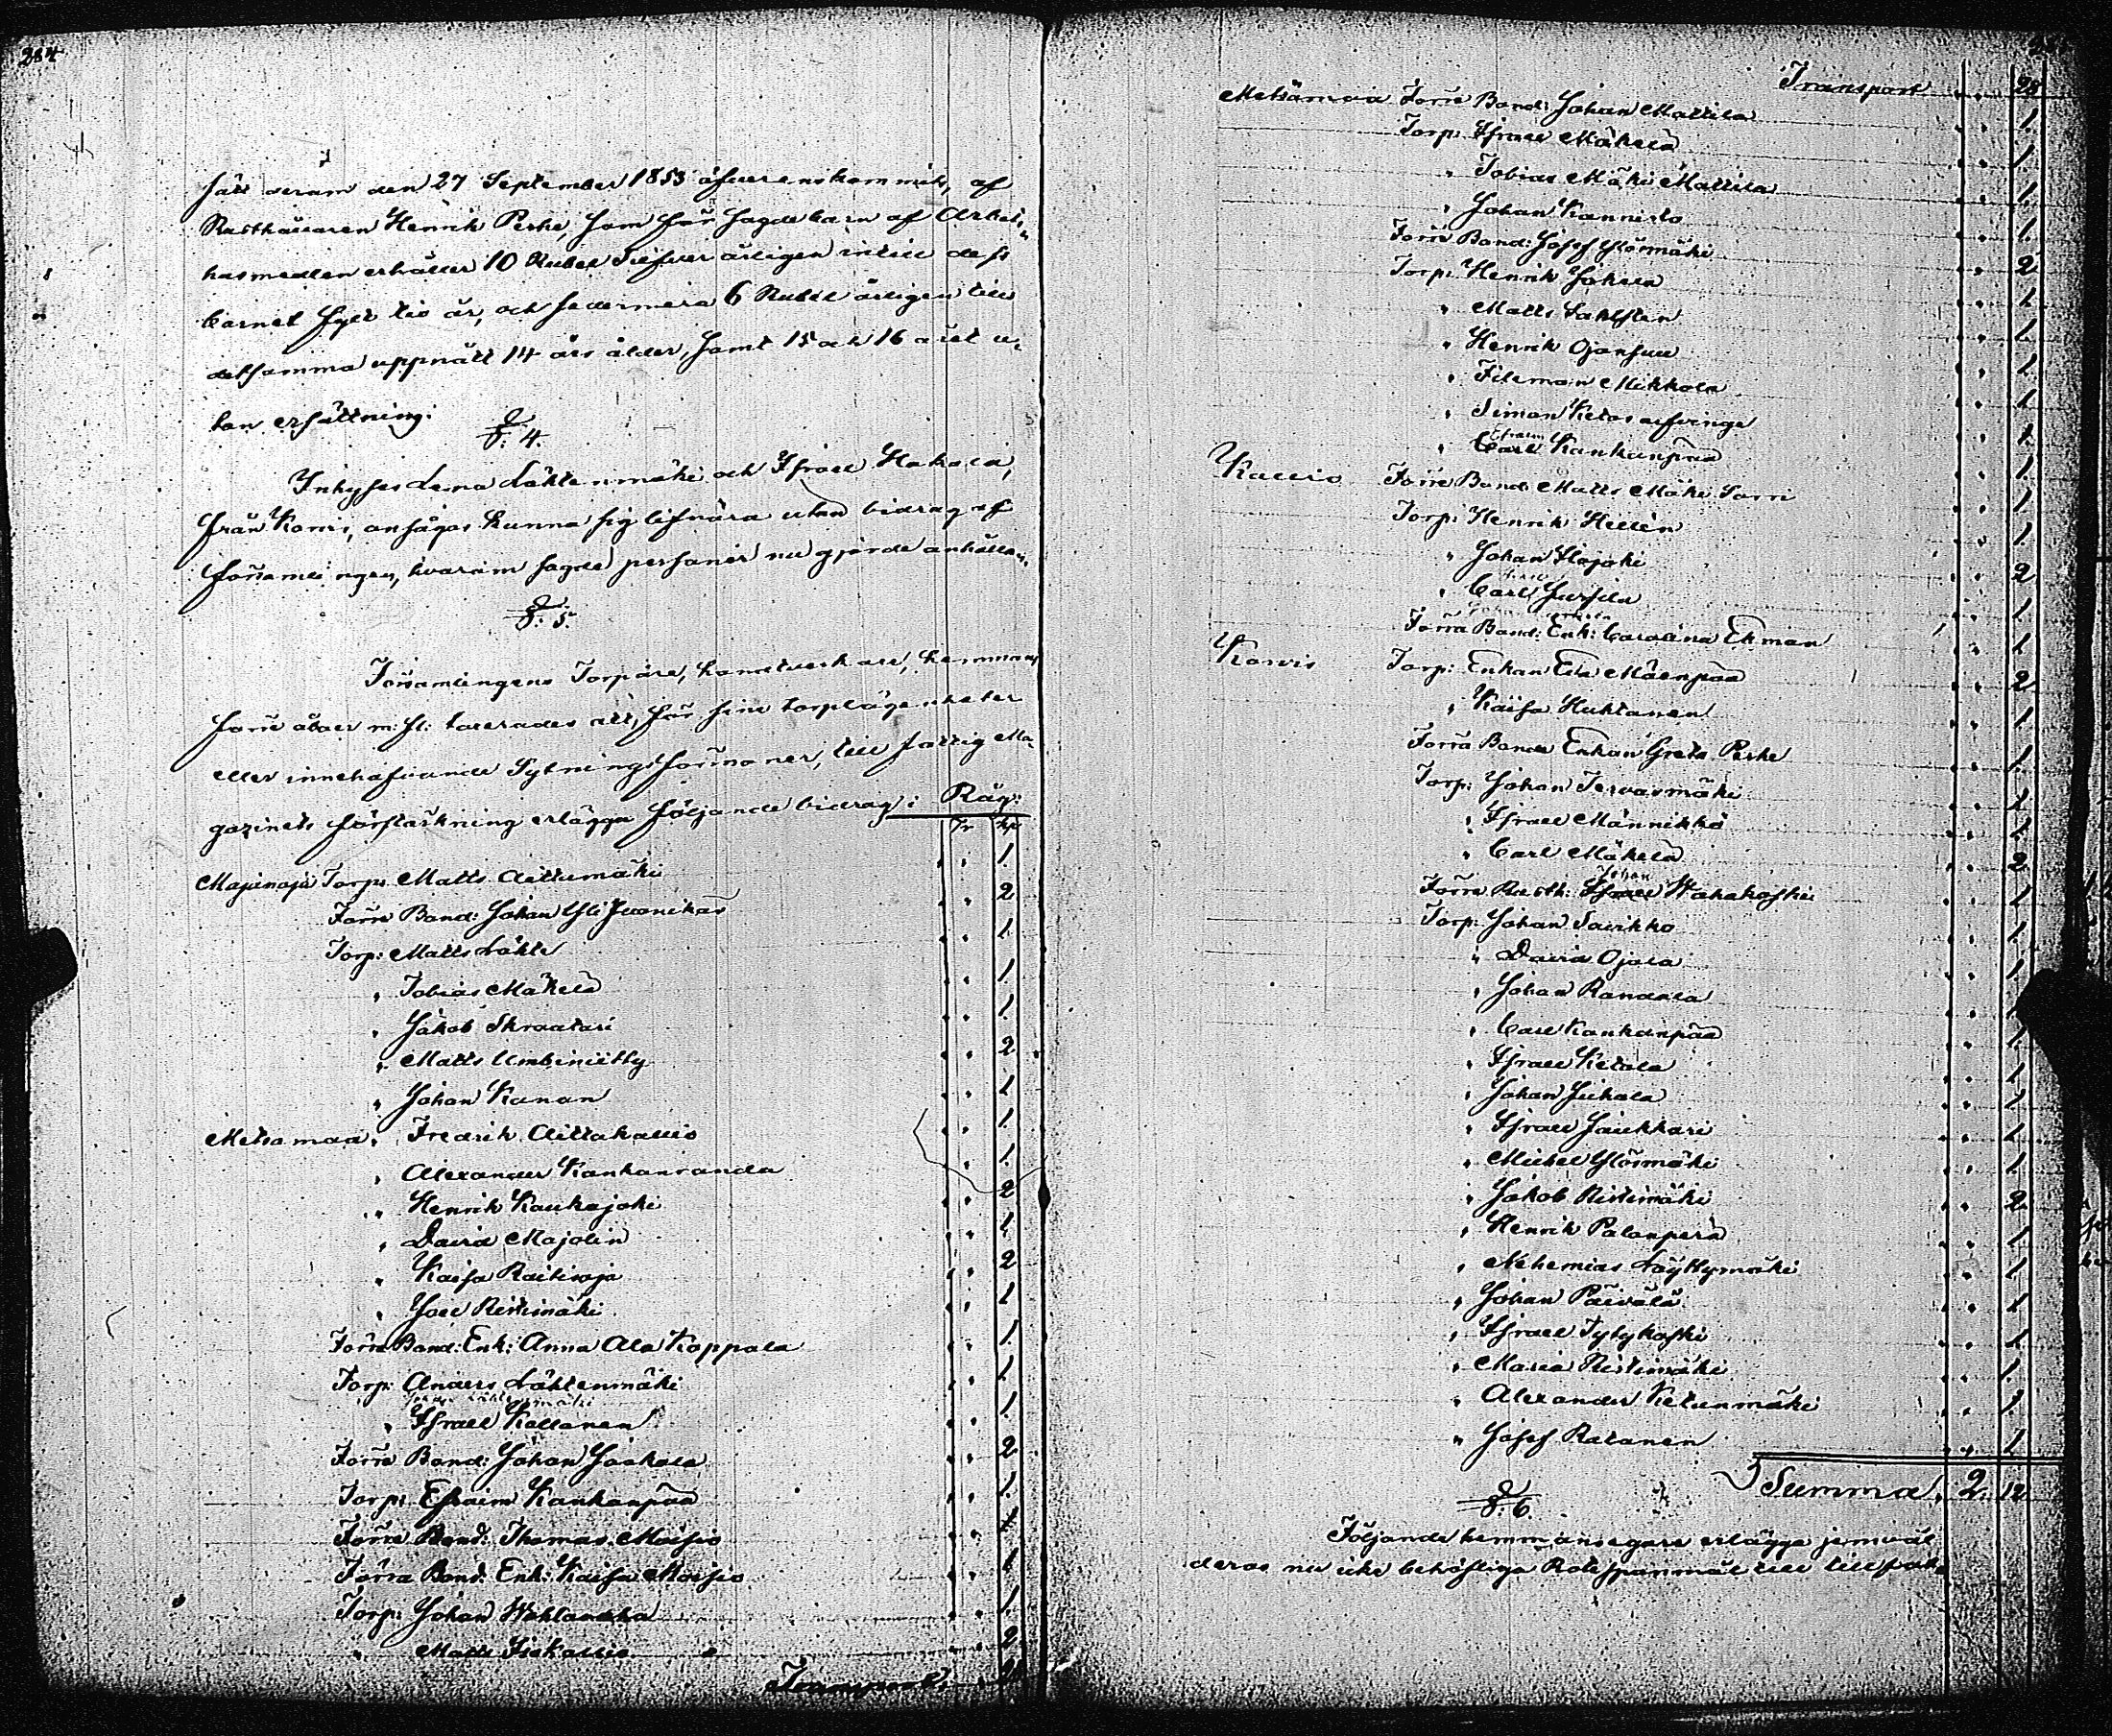 284
sätt derom den 27 September 1853 öfverenskommits, af
Rusthållaren Henrik Peske, som för sagde barn af Arbets„
husmedlen erhåller 10 Rubel Silfver årligen intill dess
barnet fyllt tio år, och sedermera 6 Rubel årligen till
detsamma uppnått 14 års ålder, samt 15 och 16 året u„
tan ersättning.
§. 4.
Inhyses Lena Lähtenmäki och Israel Hakala,
från Korvis, ansågos kunna sig lifnära utan bidrag af
församlingen, hvarom sagde personer nu gjorde anhållan.
§. 5.
Församlingens Torpare, handtverkare, hemmans
förre åboer m: fl: taxerades att, för sine torplägenheter
eller innehafvande Sytningsförmoner, till fattig Ma„
gazinets förstärkning erlägga följande bidrag: Råg:
Tr kp
Majinoja Torp: Matts Aittumäki . . 1.
Förre Bond: Johan Yli Juonikas . . 2
Torp: Matts Lähte . . 1.
„ Tobias Mäkelä . . 1
„ Jakob Skraatari . . 1.
„ Matts Umbiniitty . . 2
„ Johan Kanan . . 1
Metsämaa „ Fredrik Aittakallio . . 1.
„ Alexander Kankanranda . . 1.
„ Henrik Kaukajoki . . 2
„ David Majolin . . 1
„ Kaisa Raitinoja . . 2
„ Joel Ristimäki . . 1
Förra Bond: Enk: Anna Ala Koppala . . 1
Torp: Anders Lähtenmäki . . 1
„ Israel Kallanen . . 1.
Förre Bond: Johan Jaakola . . 2
Torp: Efraim Kankanpää . . 1.
Förre Bond: Thomas Moisio
Förra Bond: Enk: Kaisa Moisio . . 1
Torp: Johan . . 1.
„ Matts Isokallio . . 2
Transport
Transport . . 28
Metsämaa Förre Bond: Johan Mattila . . 1.
Torp: Israel Mäkelä . . 1.
„ Tobias Mäki Mattila . . 1.
„ Johan Kannisto . . 1.
Förre Bond: Josef Ylösmäki . . 2
Torp: Henrik Jokela . . 1
„ Matts Sahlsten . . 1.
„ Henrik Ojansuu . . 1
„ Fileman Mikkola . . 1
„ Simon Ketosalfvinge . . 1.
Efraim
„ Carl Kankanpää . . 1.
Kallio Förre Bond: Matts Mäki Sorri . . 1
Torp: Henrik Hellén . . 1
„ Johan Ilojoki . . 2
„ Carl Jussila . . 1
Förra Bond: Enk: Carolina Ekman . . 1
Korvis Torp: Enkan Eva Mäenpää . . 2
„ Kaisa Huhtanen . . 1
Förra Bonde Enkan Greta Peske . . 1.
Torp: Johan Tervasmäki . . 1
„ Israel Männikkö . . 1
„ Carl Mäkelä . . 2
Johan
Förre Rusth: Israel Wahakoski . . 1
Torp: Johan Savikko . . 1.
„ David Ojala . . 1
„ Johan Randala . . 1
„ Carl Kankanpää . . 1.
„ Israel Ketola . . 1
„ Johan Juhala . . 1
„ Israel Jaukkari . . 1
„ Michel Ylösmäki . . 1
„ Jakob Ristimäki . . 2
„ Henrik Palanperä . . 1
„ Nehemias Löyttymäki . . 1
„ Johan Päivölä . . 1
„ Israel Tytykoski . . 1
„ Maria Ristimäki . . 1.
„ Alexander Ketunmäki . . 1
„ Josef Ratanen . . 1
Summa. 2. 12
§. 6.
Följande hemmansegare erlägge jemväl
deras nu icke behöfliga Rotespanmål till tillfäk„